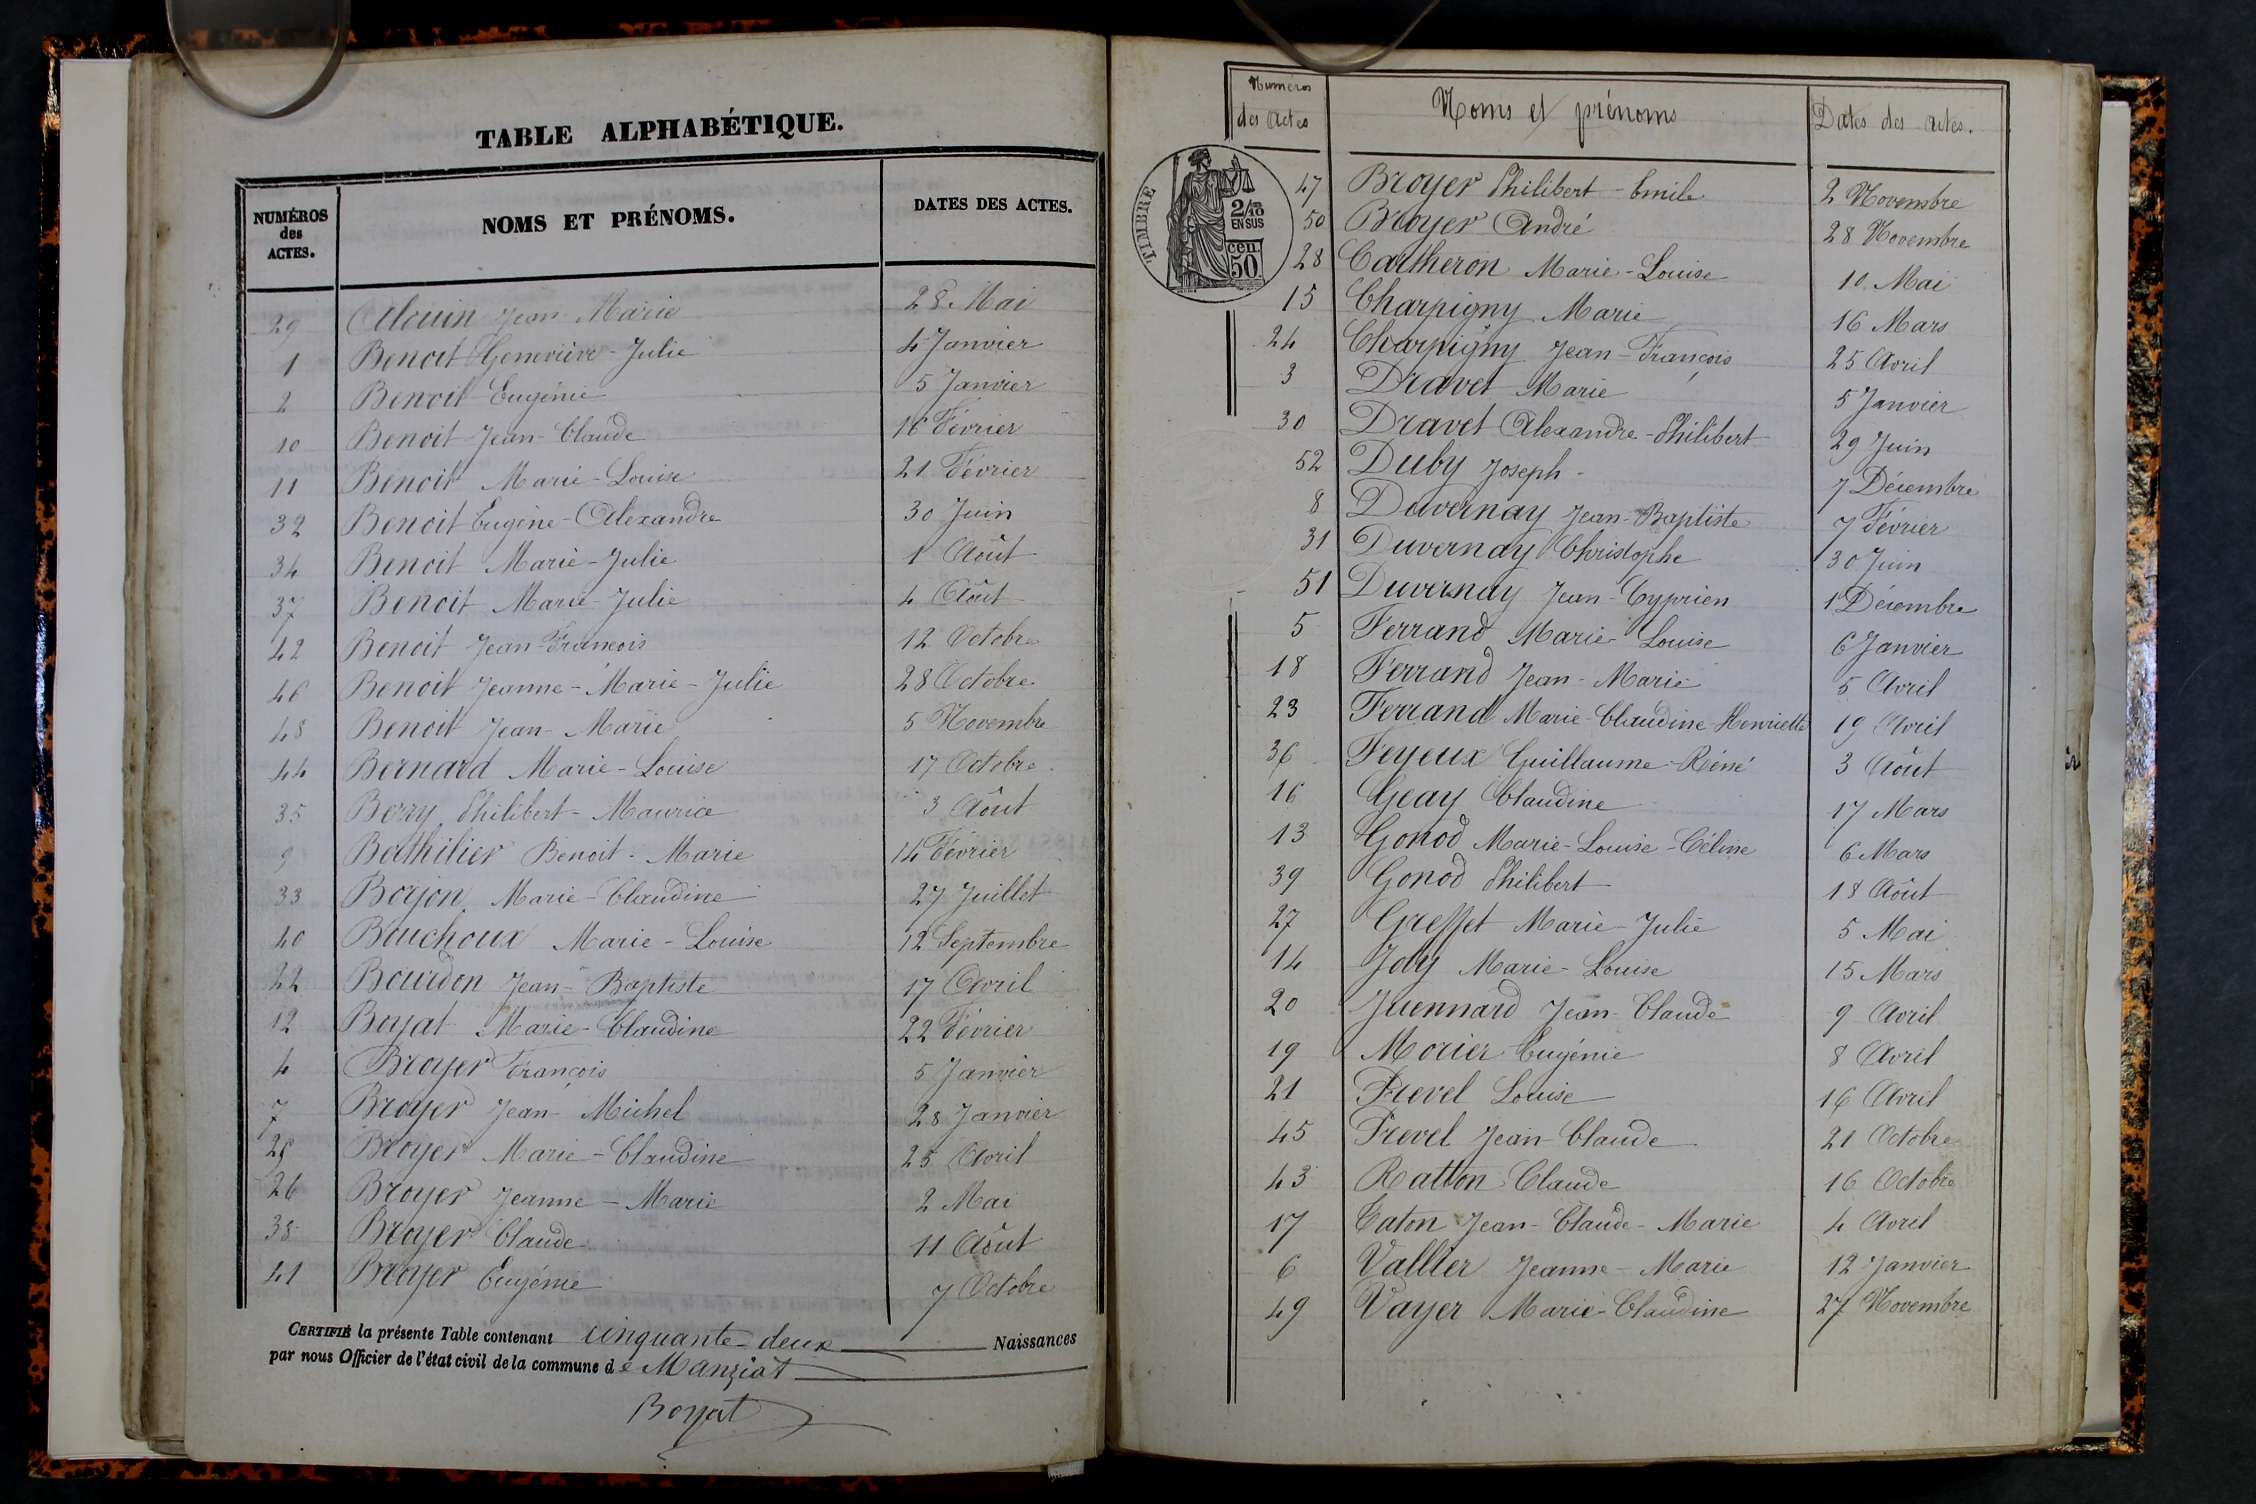 TABLE ALPHABÉTIQUE.
NUMÉROS des ACTES. NOMS ET PRÉNOMS. DATES DES ACTES.
29 Alouin Jean Marie 28 Mai
1 Benoit Geneviève-Julie 4 Janvier
2 Benoit Eugénie 5 Janvier
10 Benoit Jean-Claude 16 Février
11 Benoit Marie-Louise 21 Février
32 Benoit Eugène-Alexandre 30 Juin
34 Benoit Marie-Julie 1 Août
37 Benoit Marie-Julie 4 Août
42 Benoit Jean-François 12 Octobre
46 Benoit Jeanne-Marie-Julie 28 Octobre
48 Benoit Jean-Marie 5 Novembre
44 Bernard Marie-Louise 17 Octobre
35 Berry Philibert-Maurice 3 Août
9 Bathilier Benoit-Marie 14 Février
33 Borjon Marie-Claudine 27 Juillet
40 Bouchoux Marie-Louise 12 Septembre
22 Bourdon Jean-Baptiste 17 Avril
12 Boyat Marie-Claudine 22 Février
4 Broyer François 5 Janvier
7 Broyer Jean-Michel 28 Janvier
25 Broyer Marie-Claudine 25 Avril
26 Broyer Jeanne-Marie 2 Mai
38 Broyer Claude 11 Août
41 Broyer Eugénie 7 Octobre
CERTIFIÉ la présente Table contenant cinquante-deux Naissances
par nous Officier de l'état civil de la commune de Manziat
Boyat
Numéros des Actes Noms et prénoms Dates des actes.
TIMBRE
2/10 EN SUS
50 cen.
47 Broyer Philibert-Emile 2 Novembre
50 Broyer André 28 Novembre
28 Catheron Marie-Louise 10 Mai
15 Charpigny Marie 16 Mars
24 Charpigny Jean-François 25 Avril
3 Dravet Marie 5 Janvier
30 Dravet Alexandre-Philibert 29 Juin
52 Duby Joseph 7 Décembre
8 Duvernay Jean-Baptiste 7 Février
31 Duvernay Christophe 30 Juin
51 Duvernay Jean-Cyprien 1 Décembre
5 Ferrand Marie-Louise 6 Janvier
18 Ferrand Jean-Marie 5 Avril
23 Ferrand Marie-Claudine-Henriette 19 Avril
36 Feyeux Guillaume-Réné 3 Août
16 Geay Claudine 17 Mars
13 Gonod Marie-Louise-Céline 6 Mars
39 Gonod Philibert 18 Août
27 Greffet Marie-Julie 5 Mai
14 Joly Marie-Louise 15 Mars
20 Juennard Jean-Claude 9 Avril
19 Morier Eugénie 8 Avril
21 Prevel Louise 16 Avril
45 Prevel Jean-Claude 21 Octobre
43 Ratton Claude 16 Octobre
17 Taton Jean-Claude-Marie 4 Avril
6 Vallier Jeanne-Marie 12 Janvier
49 Vayer Marie-Claudine 27 Novembre